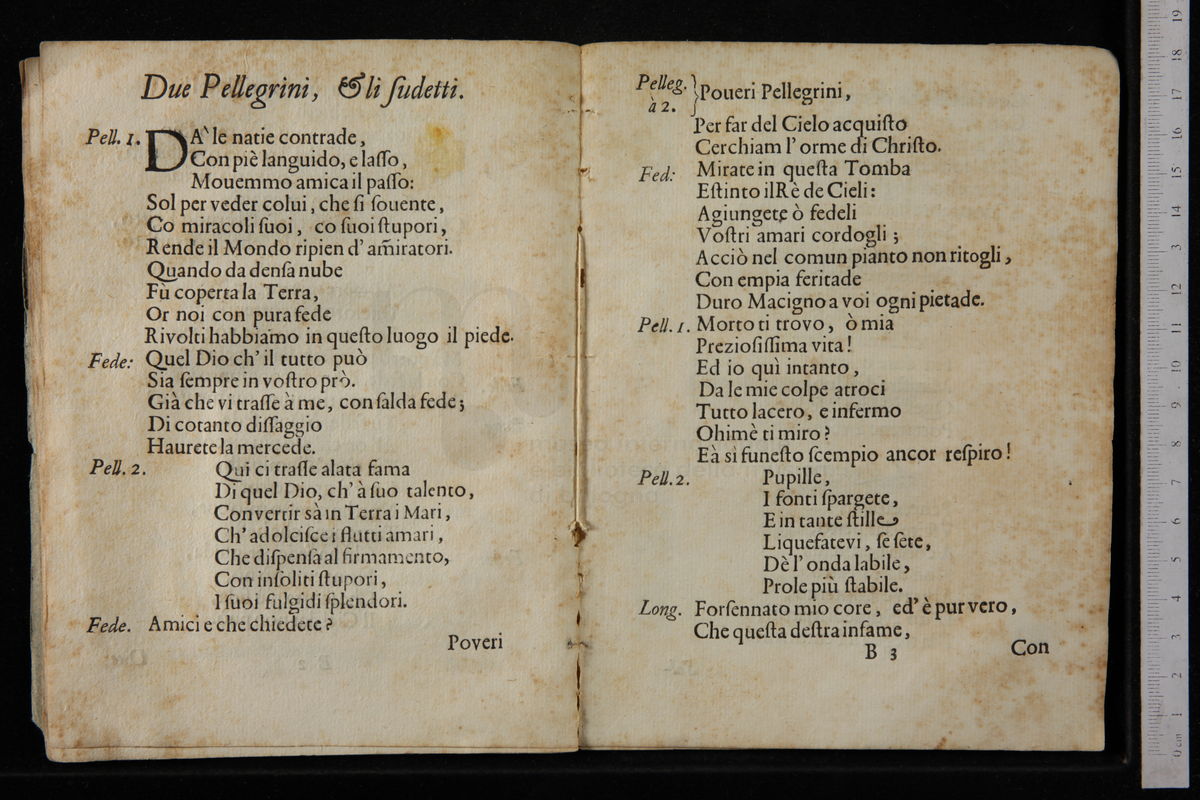 Due Pellegrini, & li ſudetti.
Pell. 1. DA` le natie contrade,
Con piè languido, e laſſo,
Mouemmo amica il paſſo:
Sol per veder colui, che ſi ſouente,
Co miracoli ſuoi, co ſuoi ſtupori,
Rende il Mondo ripien d' am̃iratori.
Quando da denſa nube
Fù coperta la Terra,
Or noi con pura fede
Rivolti habbiamo in queſto luogo il piede.
Fede: Quel Dio ch' il tutto può
Sia ſempre in voſtro prò.
Già che vi traſſe à me, con ſalda fede;
Di cotanto diſſaggio
Haurete la mercede.
Pell. 2. Qui ci traſſe alata fama
Di quel Dio, ch' à ſuo talento,
Convertir sà in Terra i Mari,
Ch' adolciſce i flutti amari,
Che diſpenſa al firmamento,
Con inſoliti ſtupori,
I ſuoi fulgidi ſplendori.
Fede. Amici e che chiedete?
Poveri
Pelleg. à 2. } Poueri Pellegrini,
Per far del Cielo acquiſto
Cerchiam l' orme di Chriſto.
Fed: Mirate in queſta Tomba
Eſtinto il Rè de Cieli:
Agiungete ò fedeli
Voſtri amari cordogli;
Acciò nel comun pianto non ritogli,
Con empia feritade
Duro Macigno a voi ogni pietade.
Pell. 1. Morto ti trovo, ò mia
Prezioſiſſima vita!
Ed io quì intanto,
Da le mie colpe atroci
Tutto lacero, e infermo
Ohimè ti miro?
E à sì funeſto ſcempio ancor reſpiro!
Pell. 2. Pupille,
I fonti ſpargete,
E in tante ſtille
Liquefatevi, ſe ſete,
Dè l' onda labile,
Prole più ſtabile.
Long. Forſennato mio core, ed' è pur vero,
Che queſta deſtra infame,
B 3
Con
0 cm 1 2 3 4 5 6 7 8 9 10 11 12 13 14 15 16 17 18 19